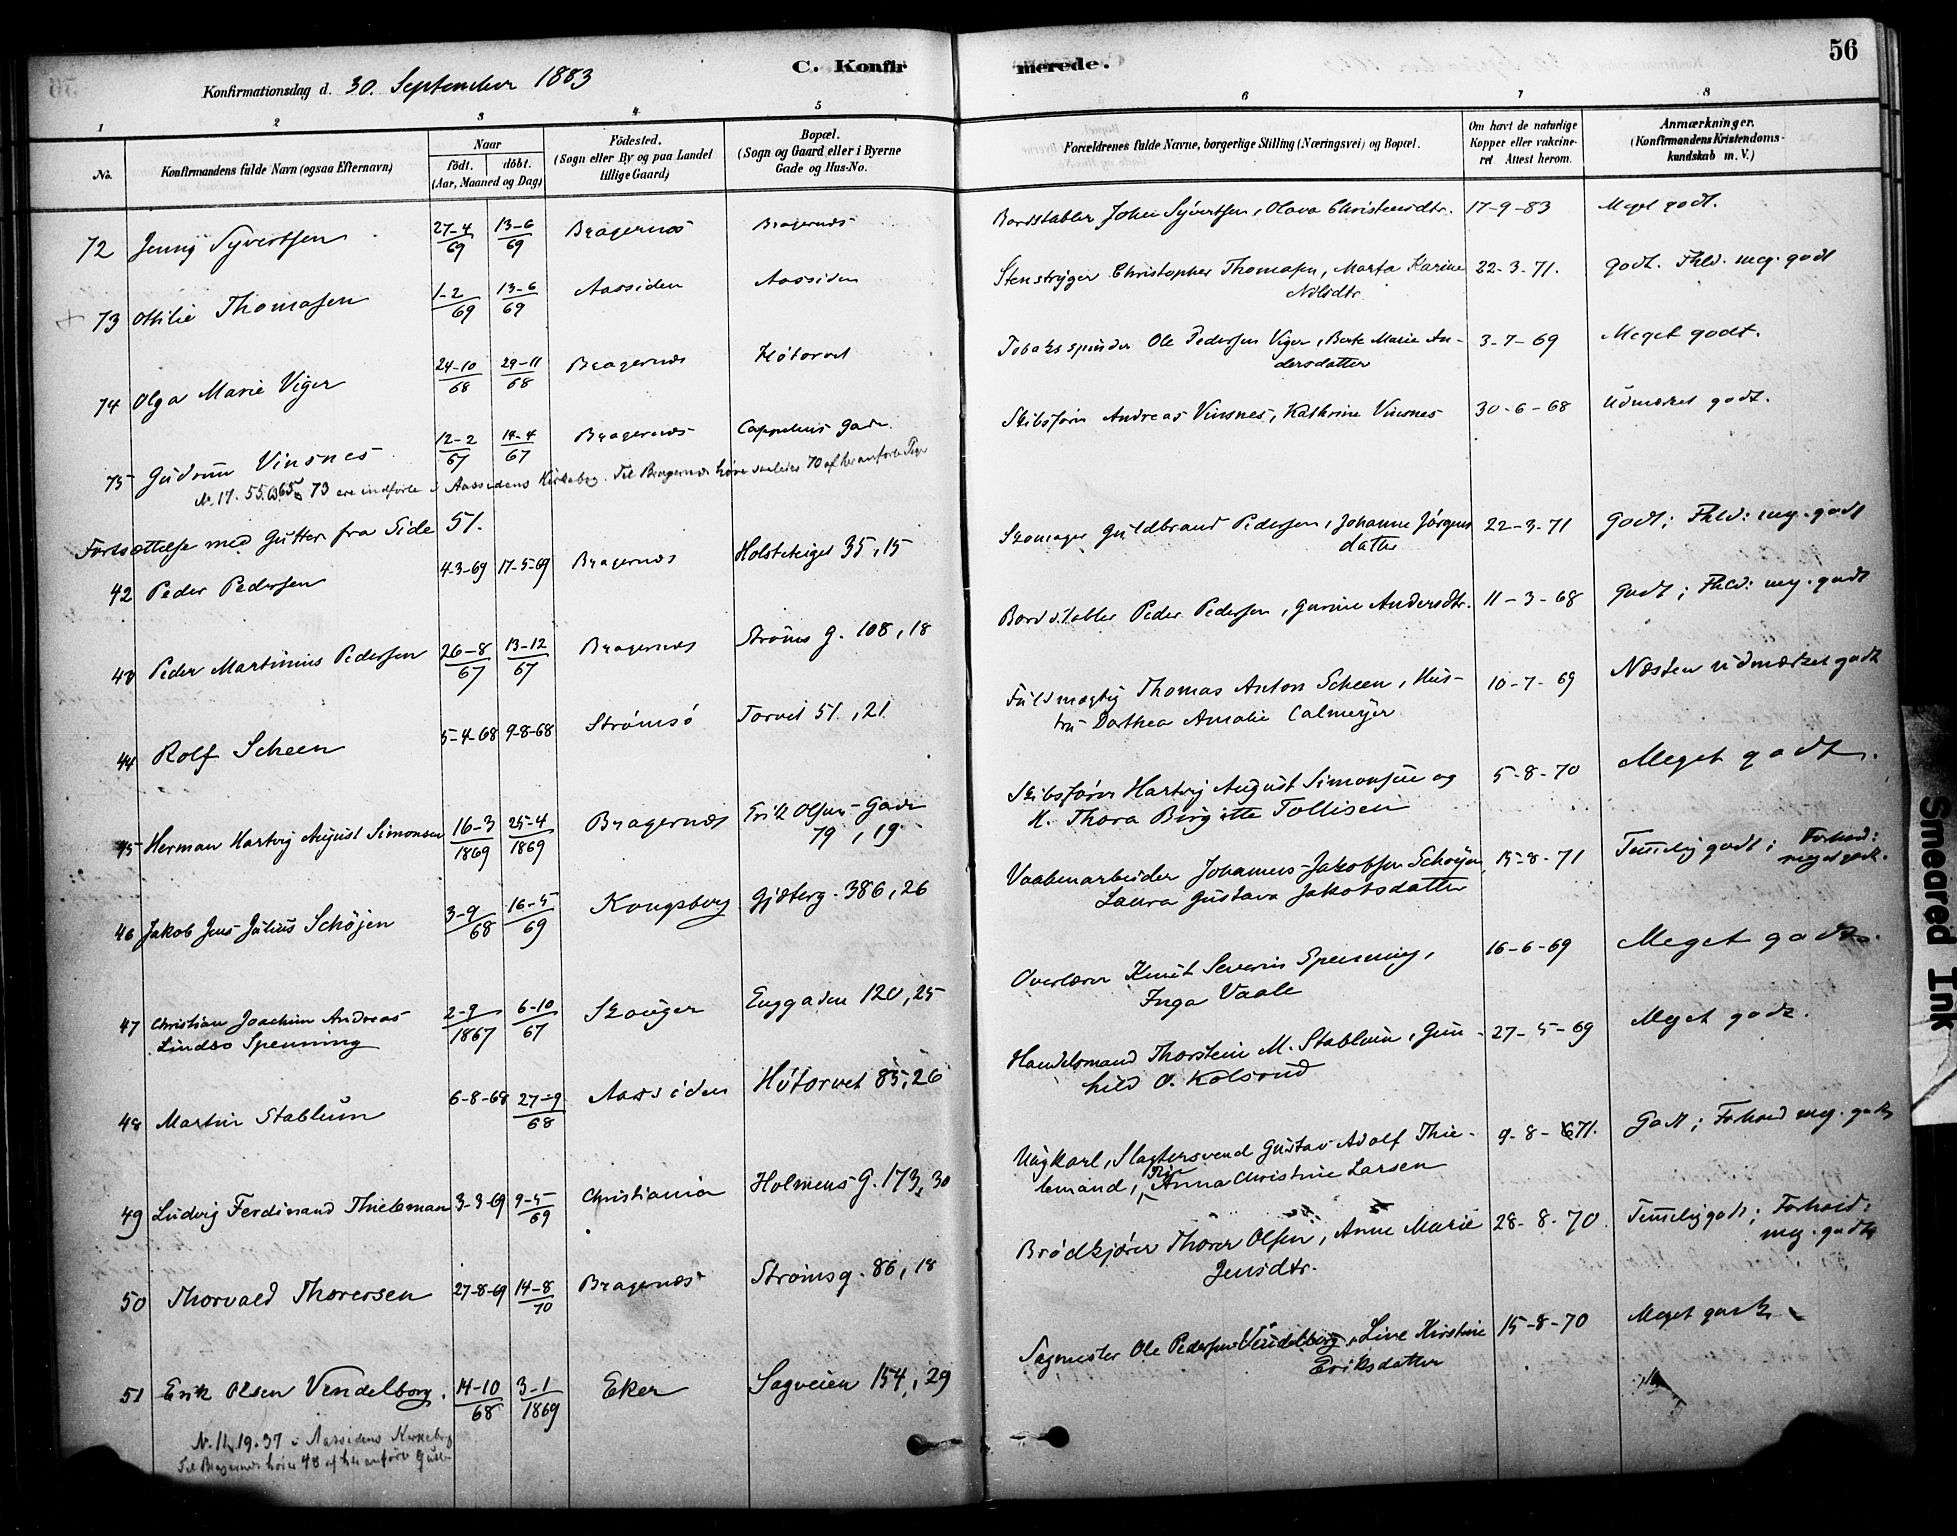 56
C. Konfirmerede.
Konfirmationsdag d. 30. September 1883
1 2 3 4 5 6 7 8
No. Konfirmandens fulde Navn (ogsaa Efternavn) Naar født. døbt. (Aar, Maaned og Dag) Fødested. (Sogn eller By og paa Landet tillige Gaard) Bopæl. (Sogn og Gaard eller i Byerne Gade og Hus-No. Forældrenes fulde Navne, borgerlige Stilling (Næringsvei) og Bopæl. Om havt de naturlige Kopper eller vakcineret. Attest herom. Anmærkninger. (Konfirmandens Kristendomskundskab m. V.)
72 Jenny Syvertsen 27-4/69 13-6/69 Bragernæs Bragernæs Bordstabler Johan Syvertsen, Olava Christensdtr. 17-9-83 Meget godt.
73 Othilie Thomasen 1-2/69 13-6/69 Aassiden Aassiden Stenstryger Christopher Thomasen, Marta Karine 22-3-71. Godt. Fhld. meg. godt
Nilsdtr.
74 Olga Marie Viger 24-10/68 29-11/68 Bragernæs Høtorvet Tobakspinder Ole Pedersen Viger, Berte Marie An- 3-7-69 Meget godt.
dersdatter
75 Gudrun Vinsnes 12-2/67 14-4/67 Bragernæs Cappelens Gade Skibsfører Andreas Vinsnes, Kathrine Vinsnes 30-6-68 Udmærket godt.
Nr. 17. 55. 63 65 og 73 ere indførte i Aassidens Kirkebog. Til Bragernæs høre saaledes 70 af her anførte Piger
Fortsættelse med Gutter fra Side 51.
42 Peder Pedersen 4-3-69 17-5-69 Bragernæs Holsteteiget 35, 15 Skomager Guldbrand Pedersen, Johanne Jørgens 22-3-71 Godt; Fhld: meg. godt
datter
43 Peder Martinius Pedersen 26-8/67 13-12/67 Bragernæs Strøms g. 108, 18 Bordstabler Peder Pedersen, Gurine Andersdtr. 11-3-68 Godt; Fhld: meg. godt
44 Rolf Scheen 5-4-68 9-8-68 Strømsø Torvet 51, 21 Fuldmægtig Thomas Anton Scheen, Hus- 10-7-69 Næsten udmærket godt
tru Dorthea Amalie Calmeyer
45 Herman Hartvig August Simonsen 16-3/1869 25-4/1869 Bragernæs Erik Olsens Gade Skibsfører Hartvig August Simonsen og 5-8-70 Meget godt.
79, 19 H. Thora Birgitte Tollisen
46 Jakob Jens Julius Schøjen 3-9/68 16-5/69 Kongsberg Gjæterg. 386, 26 Vaabenarbeider Johannes Jakobsen Schøyen, 15-8-71 Temmelig godt; Forhold:
Laura Gustava Jakobsdatter meget godt.
47 Christian Joachim Andreas 2-9/1867 6-10/67 Skouger Enggaden 120, 25 Overlærer Knut Severin Spenning, 16-6-69 Meget godt.
Lindbo Spenning Inga Vaale
48 Martin Stablum 6-8-68 27-9/68 Aassiden Høtorvet 85, 26 Handelsmand Thorstein M. Stablum, Gun- 27-5-69 Meget godt.
hild O. Kolsrud
49 Ludvig Ferdinand Thieleman 3-3-69 9-5/69 Christiania Holmens G. 173, 30 Ungkarl, Slagtersvend Gustav Adolf Thie- 9-8-71. Godt; Forhold meg. godt
lemand, Pige Anna Christine Larsen
50 Thorvald Thorersen 27-8-69 14-8/70 Bragernæs Strømsg. 86, 18 Brødkjører Thorer Olsen, Anne Marie 28-8-70. Temmelig godt; Forhold:
Jensdtr. meg. godt
51 Erik Olsen Vendelborg. 14-10/68 3-1/1869 Eker Sagveien 154, 29 Sagmester Ole Pedersen Vendelborg, Line Kirstine 15-8-70 Meget godt
Eriksdatter
Nr. 11, 19. 37 i Aassidens Kirkebog
Til Bragernæs hører 48 af her anførte Gutter
Smeared Ink